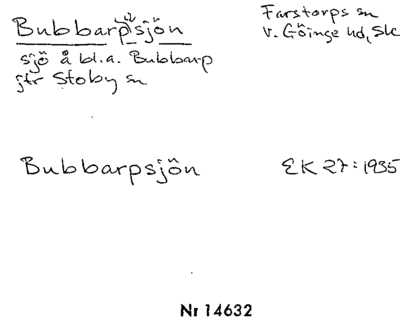 Bubbarpsjön
Farstorps sn
V. Göinge hd, Sk
sjö å bl.a. Bubbarp
jfr Stoby sn
Bubbarpsjön
EK 27:1935
Nr 14632